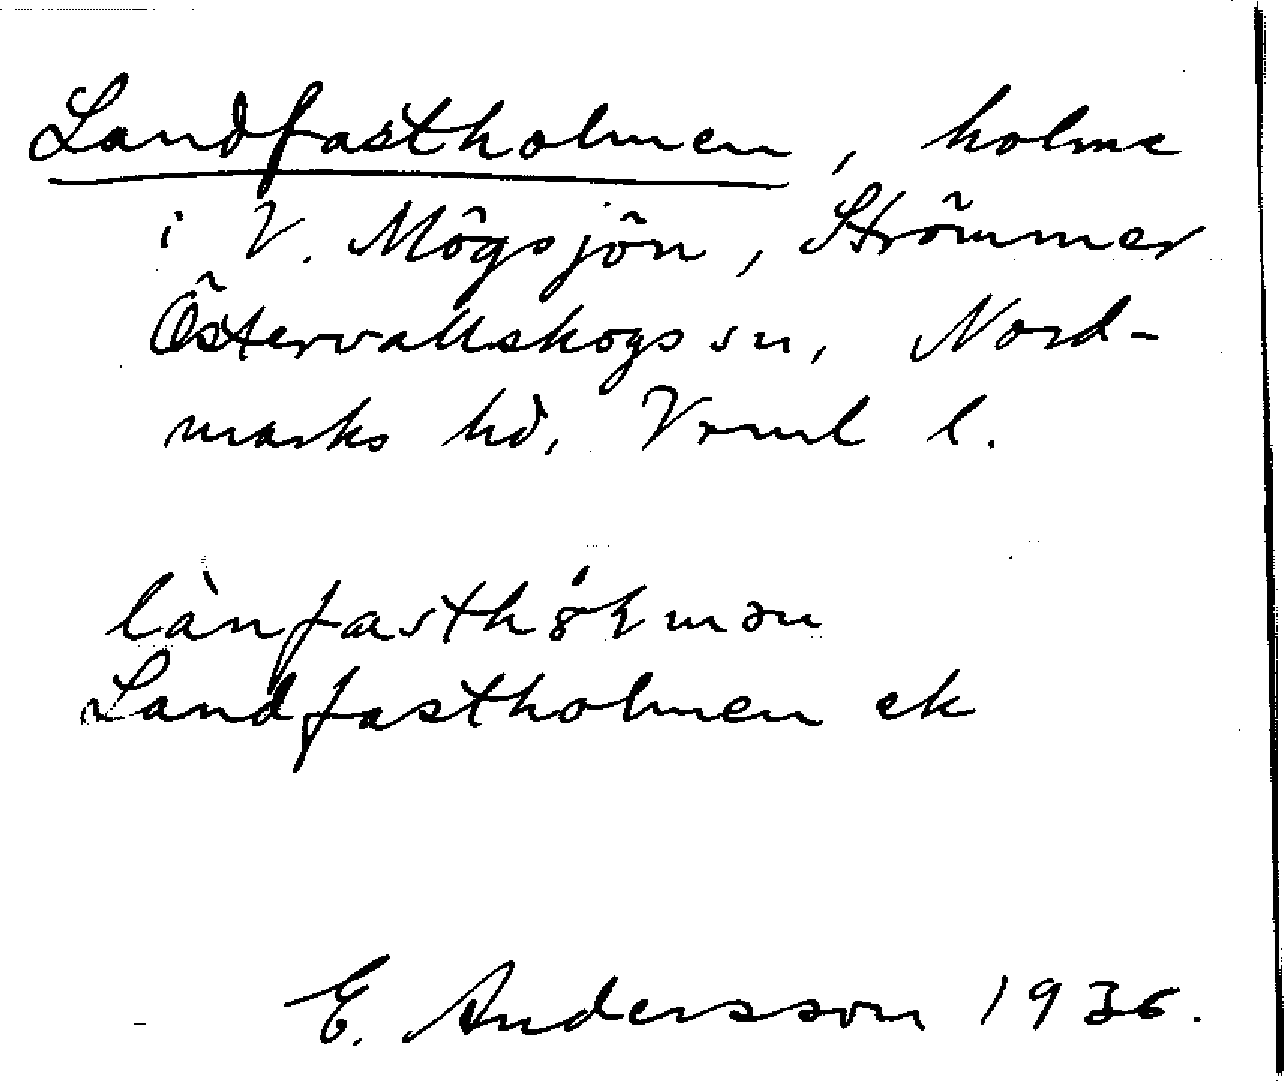 Landfastholmen, holme
i V. Mögsjön, Strömmer
Östervallskogs sn, Nord-
marks hd, Vrml l.
Landfastholmen ek
E. Andersson 1936.